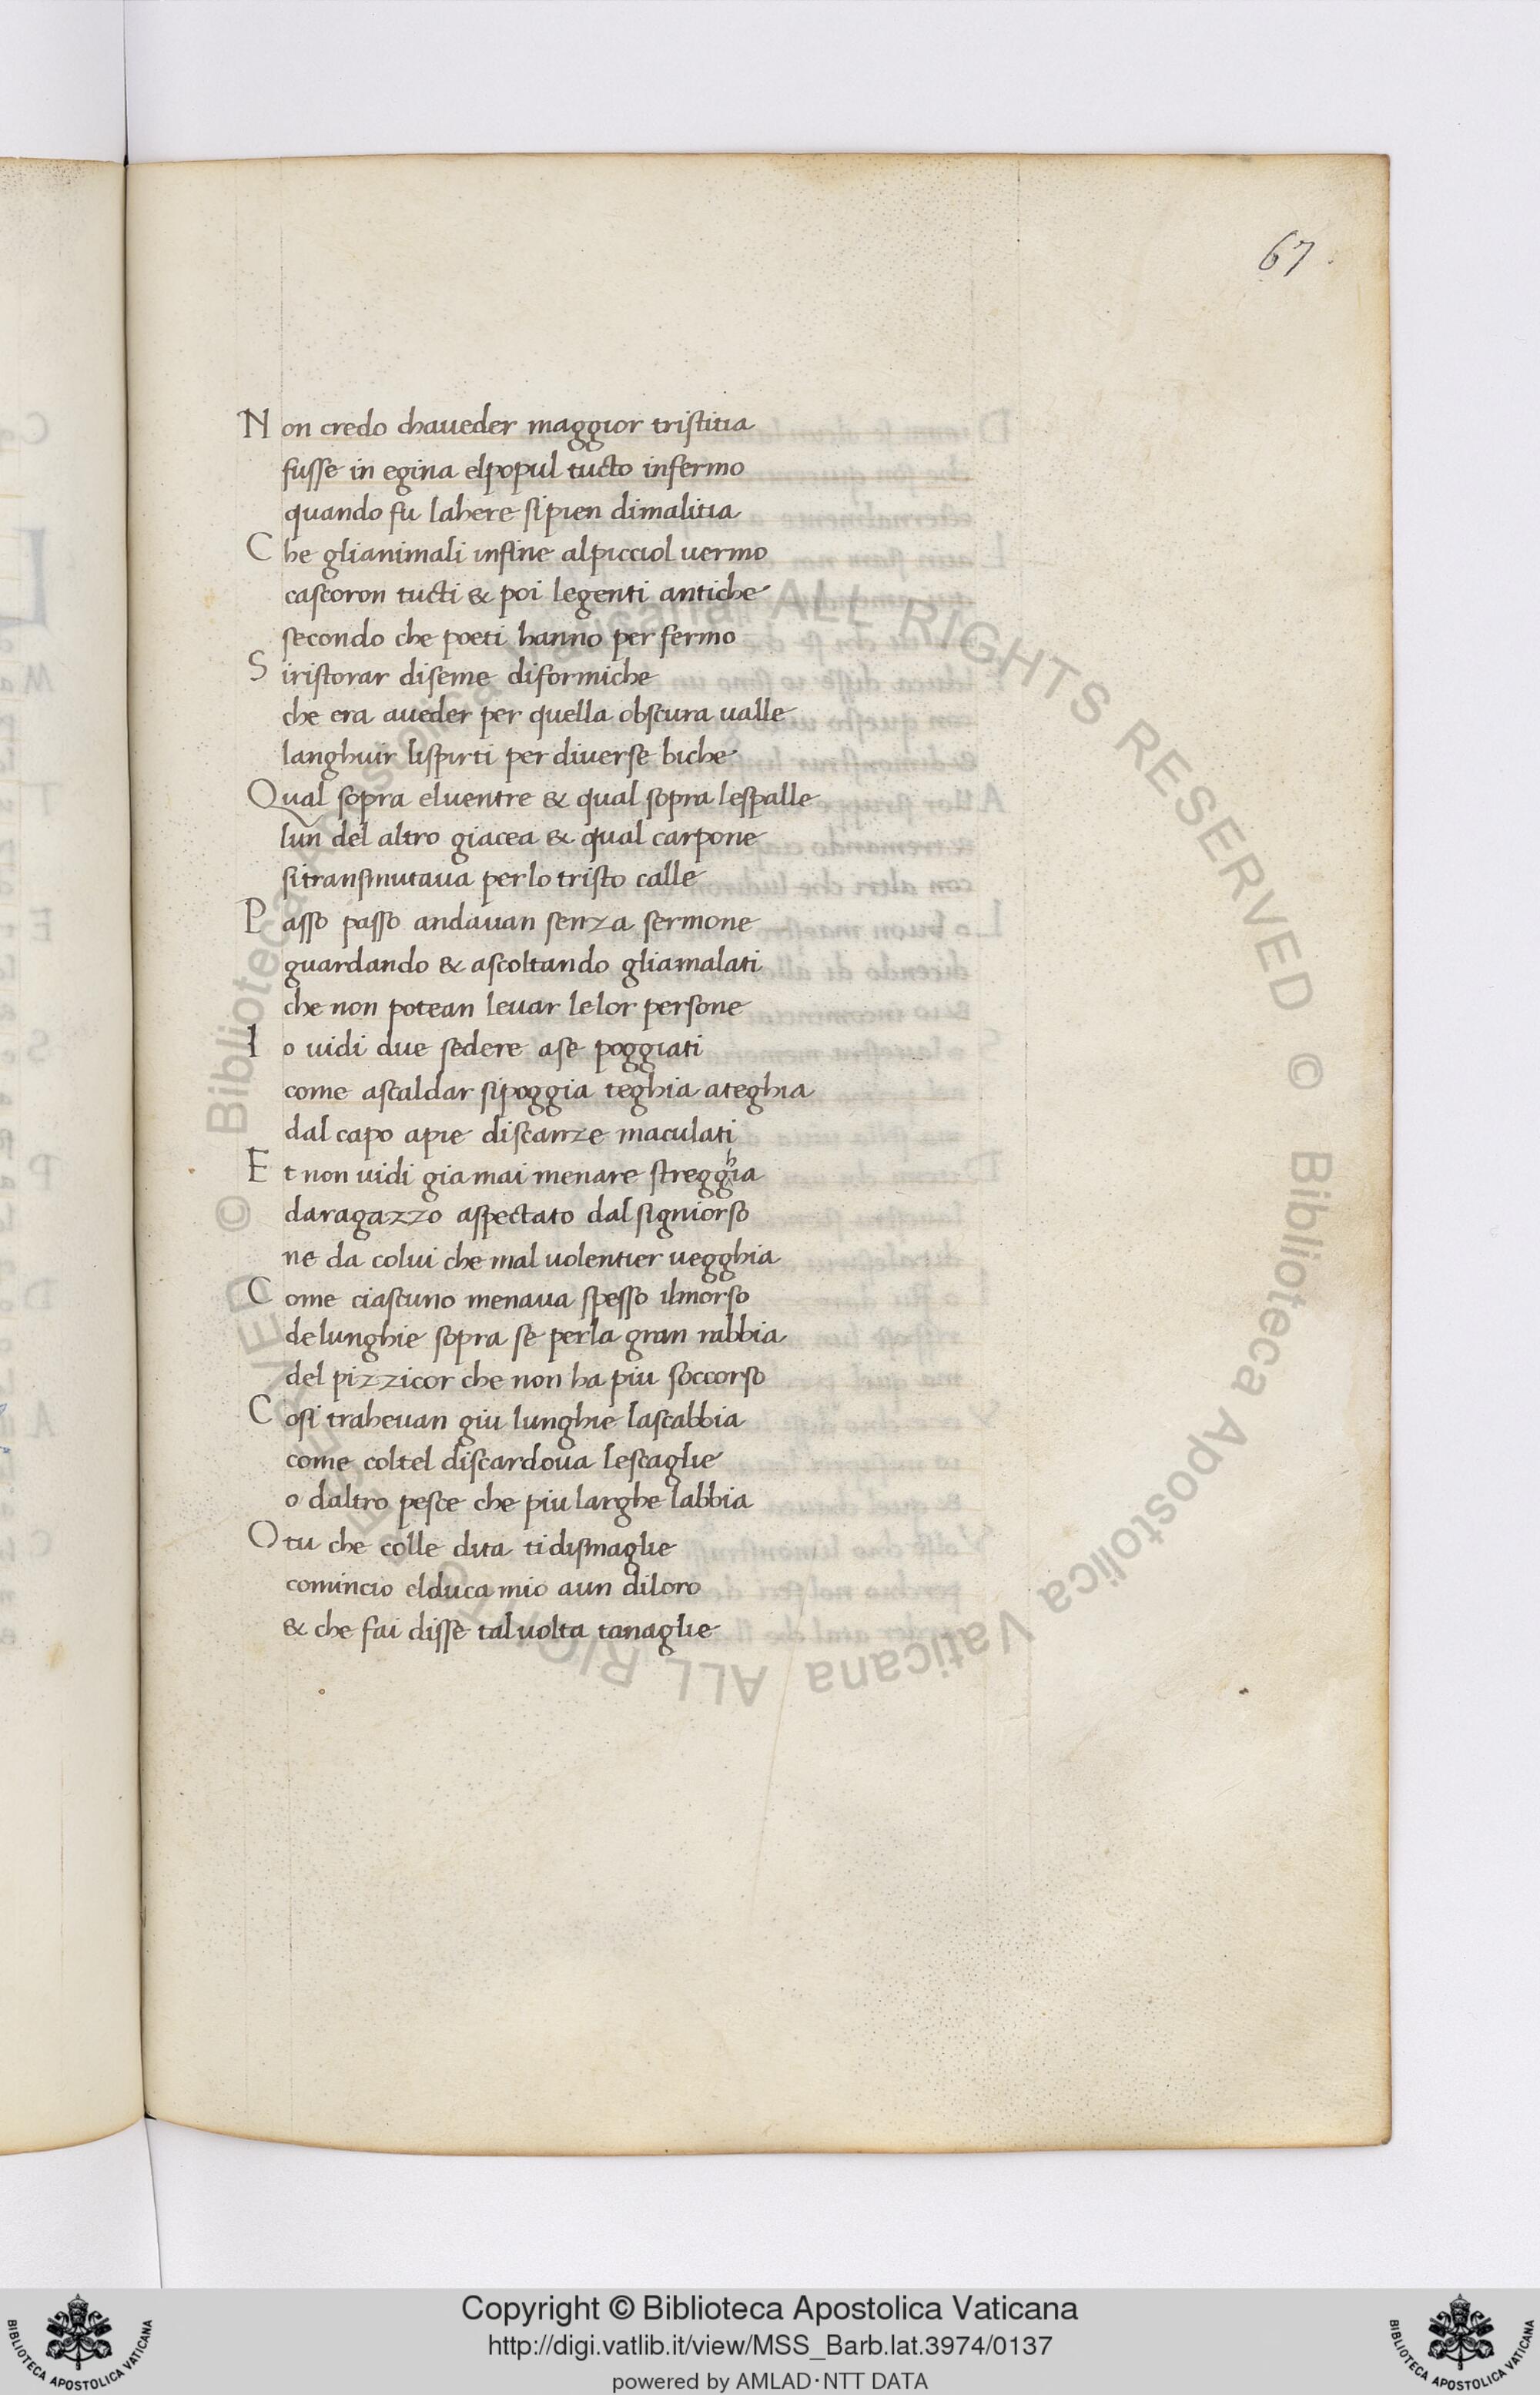 67
Non credo chaueder maggior tristitia
fusse in egina elpopul tucto infermo
quando fu lahere sipien dimalitia
Che glianimali infine alpicciol uermo
cascoron tucti & poi legenti antiche
secondo che poeti hanno per fermo
Siristorar diseme diformiche
che era aueder per quella obscura ualle
languir lispirti per diuerse biche
Qual sopra eluentre & qual sopra lespalle
lun del altro giacea & qual carpone
sitransmutaua perlo tristo calle
Passo passo andauan senza sermone
guardando & ascoltando gliamalati
che non potean leuar lelor persone
Io uidi due sedere ase poggiati
come ascaldar sipoggia teghia ateghia
dal capo apie discanze maculati
Et non uidi gia mai menare stregghia
daragazzo aspectato dal signiorso
ne da colui che mal uolentier uegghia
Come ciascuno menaua spesso ilmorso
delunghie sopra se perla gran rabbia
del pizzicor che non ha piu soccorso
Cosi traheuan giu lunghie lascabbia
come coltel discardoua lescaglie
o daltro pesce che piu larghe labbia
O tu che colle dita tidismaglie
comincio elduca mio aun diloro
& che fai disse taluolta tanaglie
Copyright © Biblioteca Apostolica Vaticana
http://digi.vatlib.it/view/MSS_Barb.lat.3974/0137
powered by AMLAD·NTT DATA